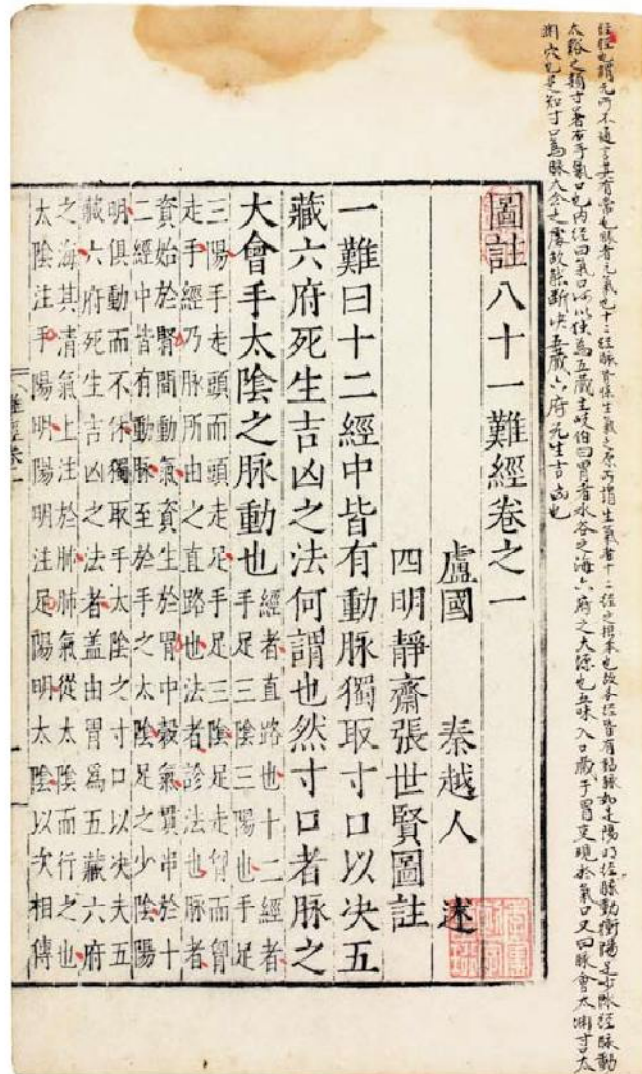 經經也謂无所不通言其有常也脉者元氣也十二經脉皆係生氣之原所謂生氣者十二經之根本也故本經皆有動脉如足陽明經脉動衝陽足少陰經脉動
太谿之類寸口者右手氣口也內經曰氣口何以獨為五藏主岐伯曰胃者水谷之海六府之大源也五味入口藏于胃變現於氣口又曰脉會太淵寸口太
淵穴也是知寸口為脉大会之處故能斷决五藏六府死生吉凶也
圖註八十一難經卷之一
盧國 秦越人 述
四明靜齋張世賢圖註
一難曰十二經中皆有動脉獨取寸口以决五
藏六府死生吉凶之法何謂也然寸口者脉之
大會手太陰之脉動也
經者直路也十二經者
手足三陰三陽也手足
三陽手走頭而頭走足手足三陰足走胷而胷
走手經乃脉所由之直路也法者診法也脉者
資始於腎間動氣資生於胃中穀氣貫串於十
二經中皆有動脉至於手之太陰足之少陰陽
明俱動而不休獨取手太陰之寸口以决夫五
藏六府死生吉凶之法者盖由胃爲五藏六府
之海其清氣上注於肺肺氣從太陰而行之也
太陰注手陽明陽明注足陽明太陰以次相傳
難經卷一
一